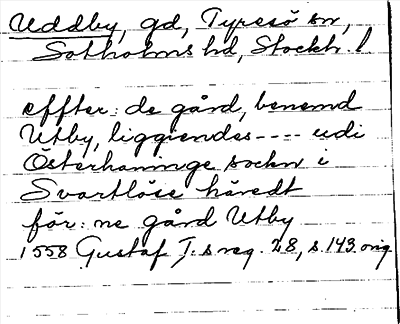 Uddby, gd, Tyresö sn,
Sotholms hd, Stockh. l
effter: de gård, benemd
Utby, liggiendes ---- udi
Österhaninge sockn i
Svartlöse häredt
för: ne gård Utby
1558 Gustaf I:s reg. 28, s. 143. orig.